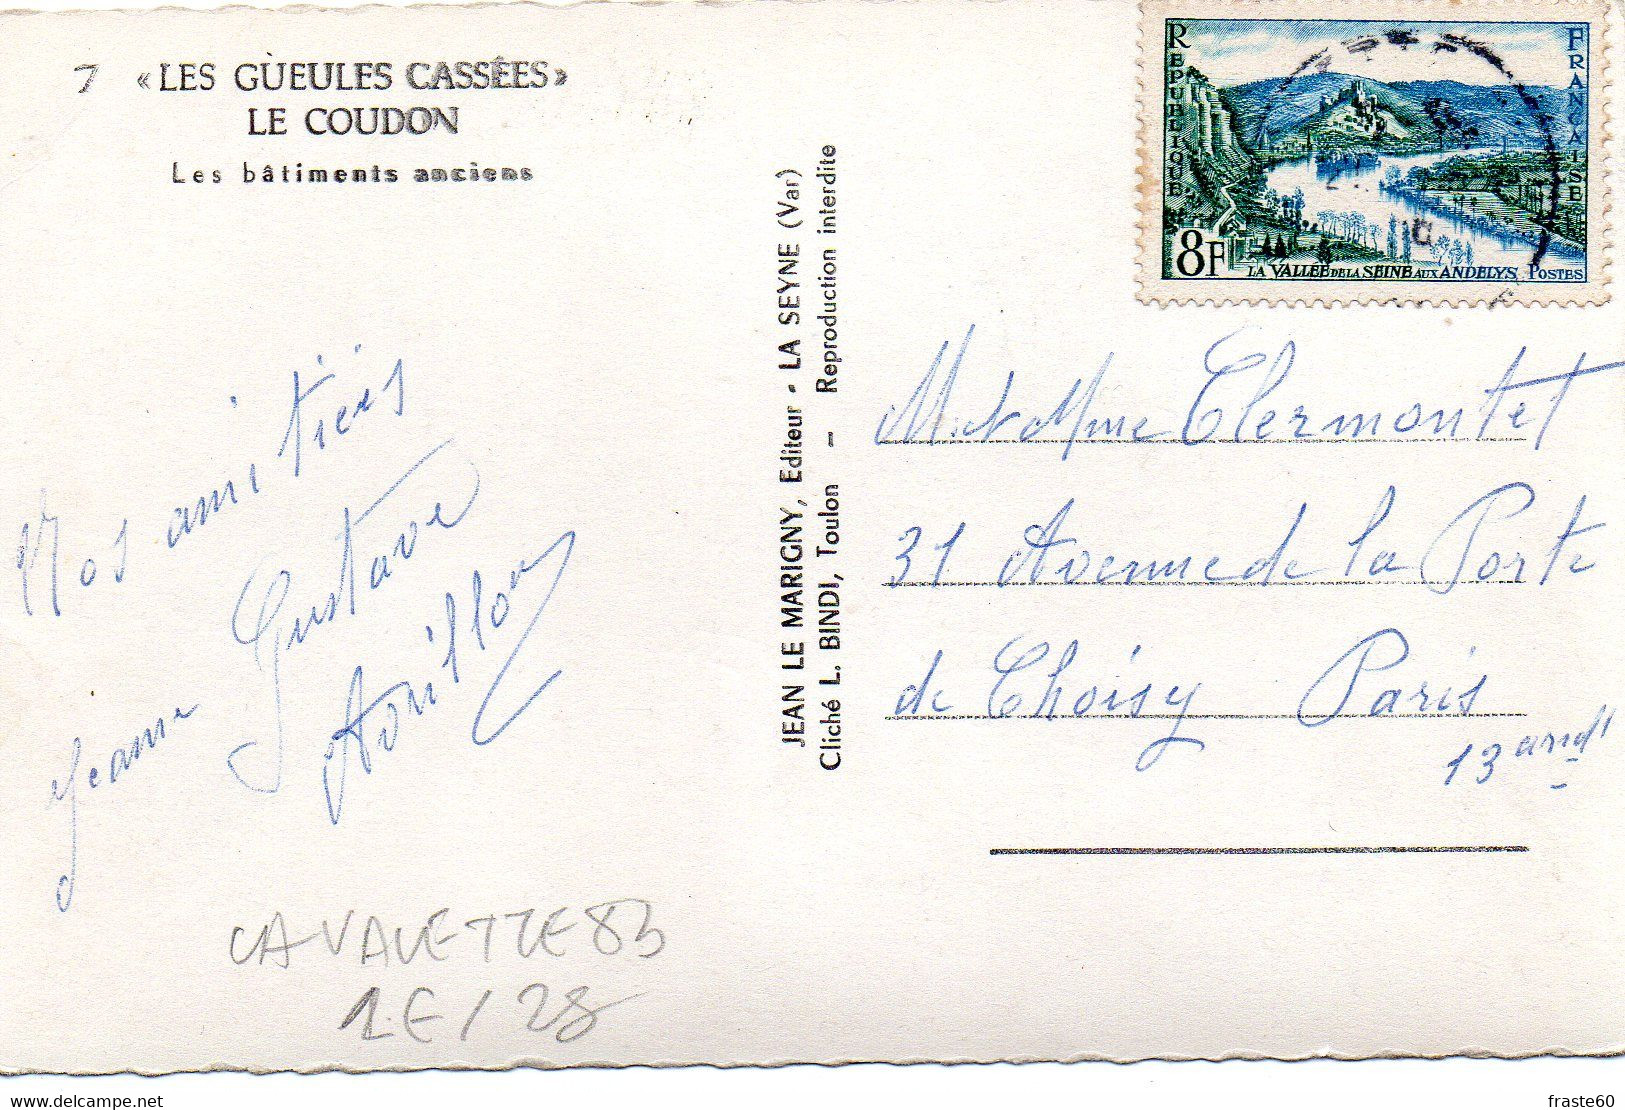 7 « LES GUEULES CASSÉES »
LE COUDON
Les bâtiments anciens
Nos amitiés
Jeanne Gustave
JEAN LE MARIGNY, Editeur - LA SEYNE (Var)
Cliché L. BINDI, Toulon — Reproduction interdite
REPUBLIQUE FRANÇAISE
8F LA VALLÉE DE LA SEINE AUX ANDELYS POSTES
M. et Mme Clermontet
31 Avenue de la Porte
de Choisy Paris
13 arrdt
LA VALETTE 83
1E / 28
www.delcampe.net
fraste60